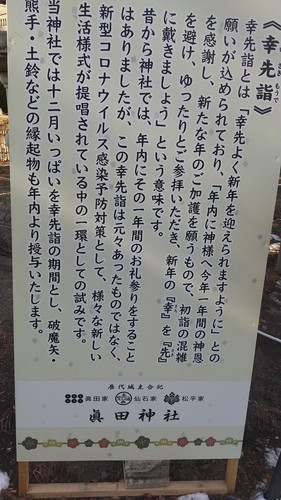 《幸先詣》
もうで
幸先詣とは「幸先よく新年を迎えられますように」との
願いが込められており、「年内に神様へ今年一年間の神恩
を感謝し、新たな年のご加護を願うもので、初詣の混雑
を避け、ゆったりとご参拝いただき、新年の『幸』を『先』
に戴きましょう」という意味です。
昔から神社では、年内にその一年間のお礼参りをすること
はありましたが、この幸先詣は元々あったものではなく、
新型コロナウイルス感染予防対策として、様々な新しい
生活様式が提唱されている中の一環としての試みです。
当神社では十二月いっぱいを幸先詣の期間とし、破魔矢・
熊手・土鈴などの縁起物も年内より授与いたします。
歴代城主合祀
眞田家 仙石家 松平家
眞田神社